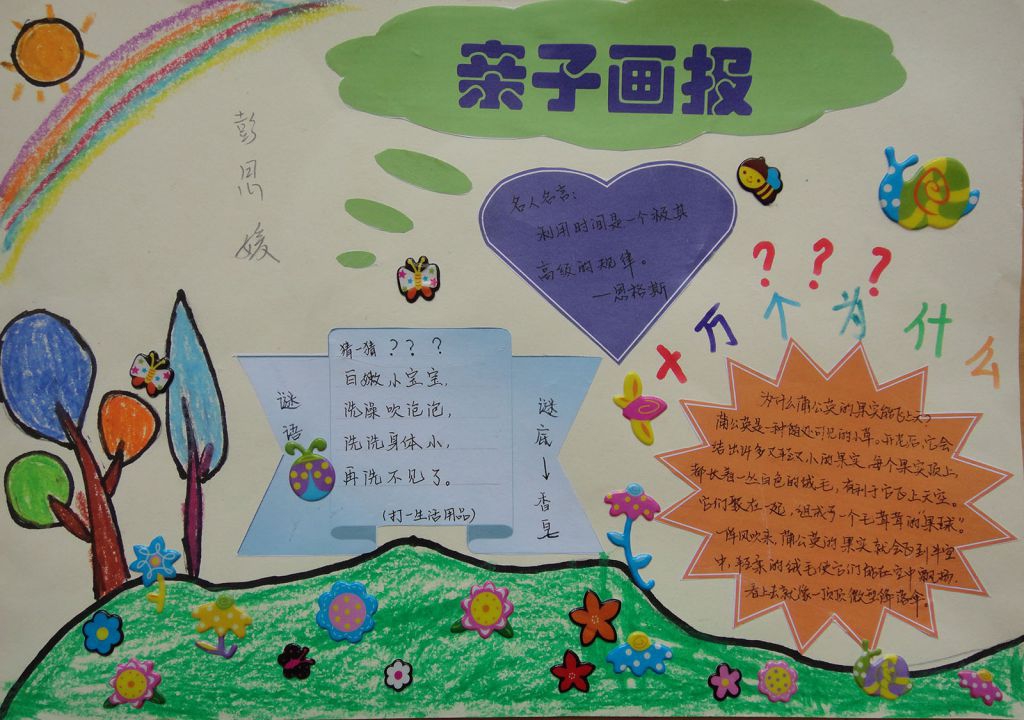 亲子画报
彭思媛
名人名言：
利用时间是一个极其
高级的规律。
—恩格斯
？？？
十万个为什么
猜一猜？？？
白嫩小宝宝，
洗澡吹泡泡，
洗洗身体小，
再洗不见了。
（打一生活用品）
谜语
谜底→香皂
为什么蒲公英的果实能飞上天？
蒲公英是一种随处可见的小草。开花后，它会
结出许多又轻又小的果实，每个果实顶上，
都长着一丛白色的绒毛，有利于它飞上天空。
它们聚在一起，组成了一个毛茸茸的“果球”。
一阵风吹来，蒲公英的果实就会飞到半空
中，轻柔的绒毛使它们能在空中飘扬，
看上去就像一顶顶微型降落伞。